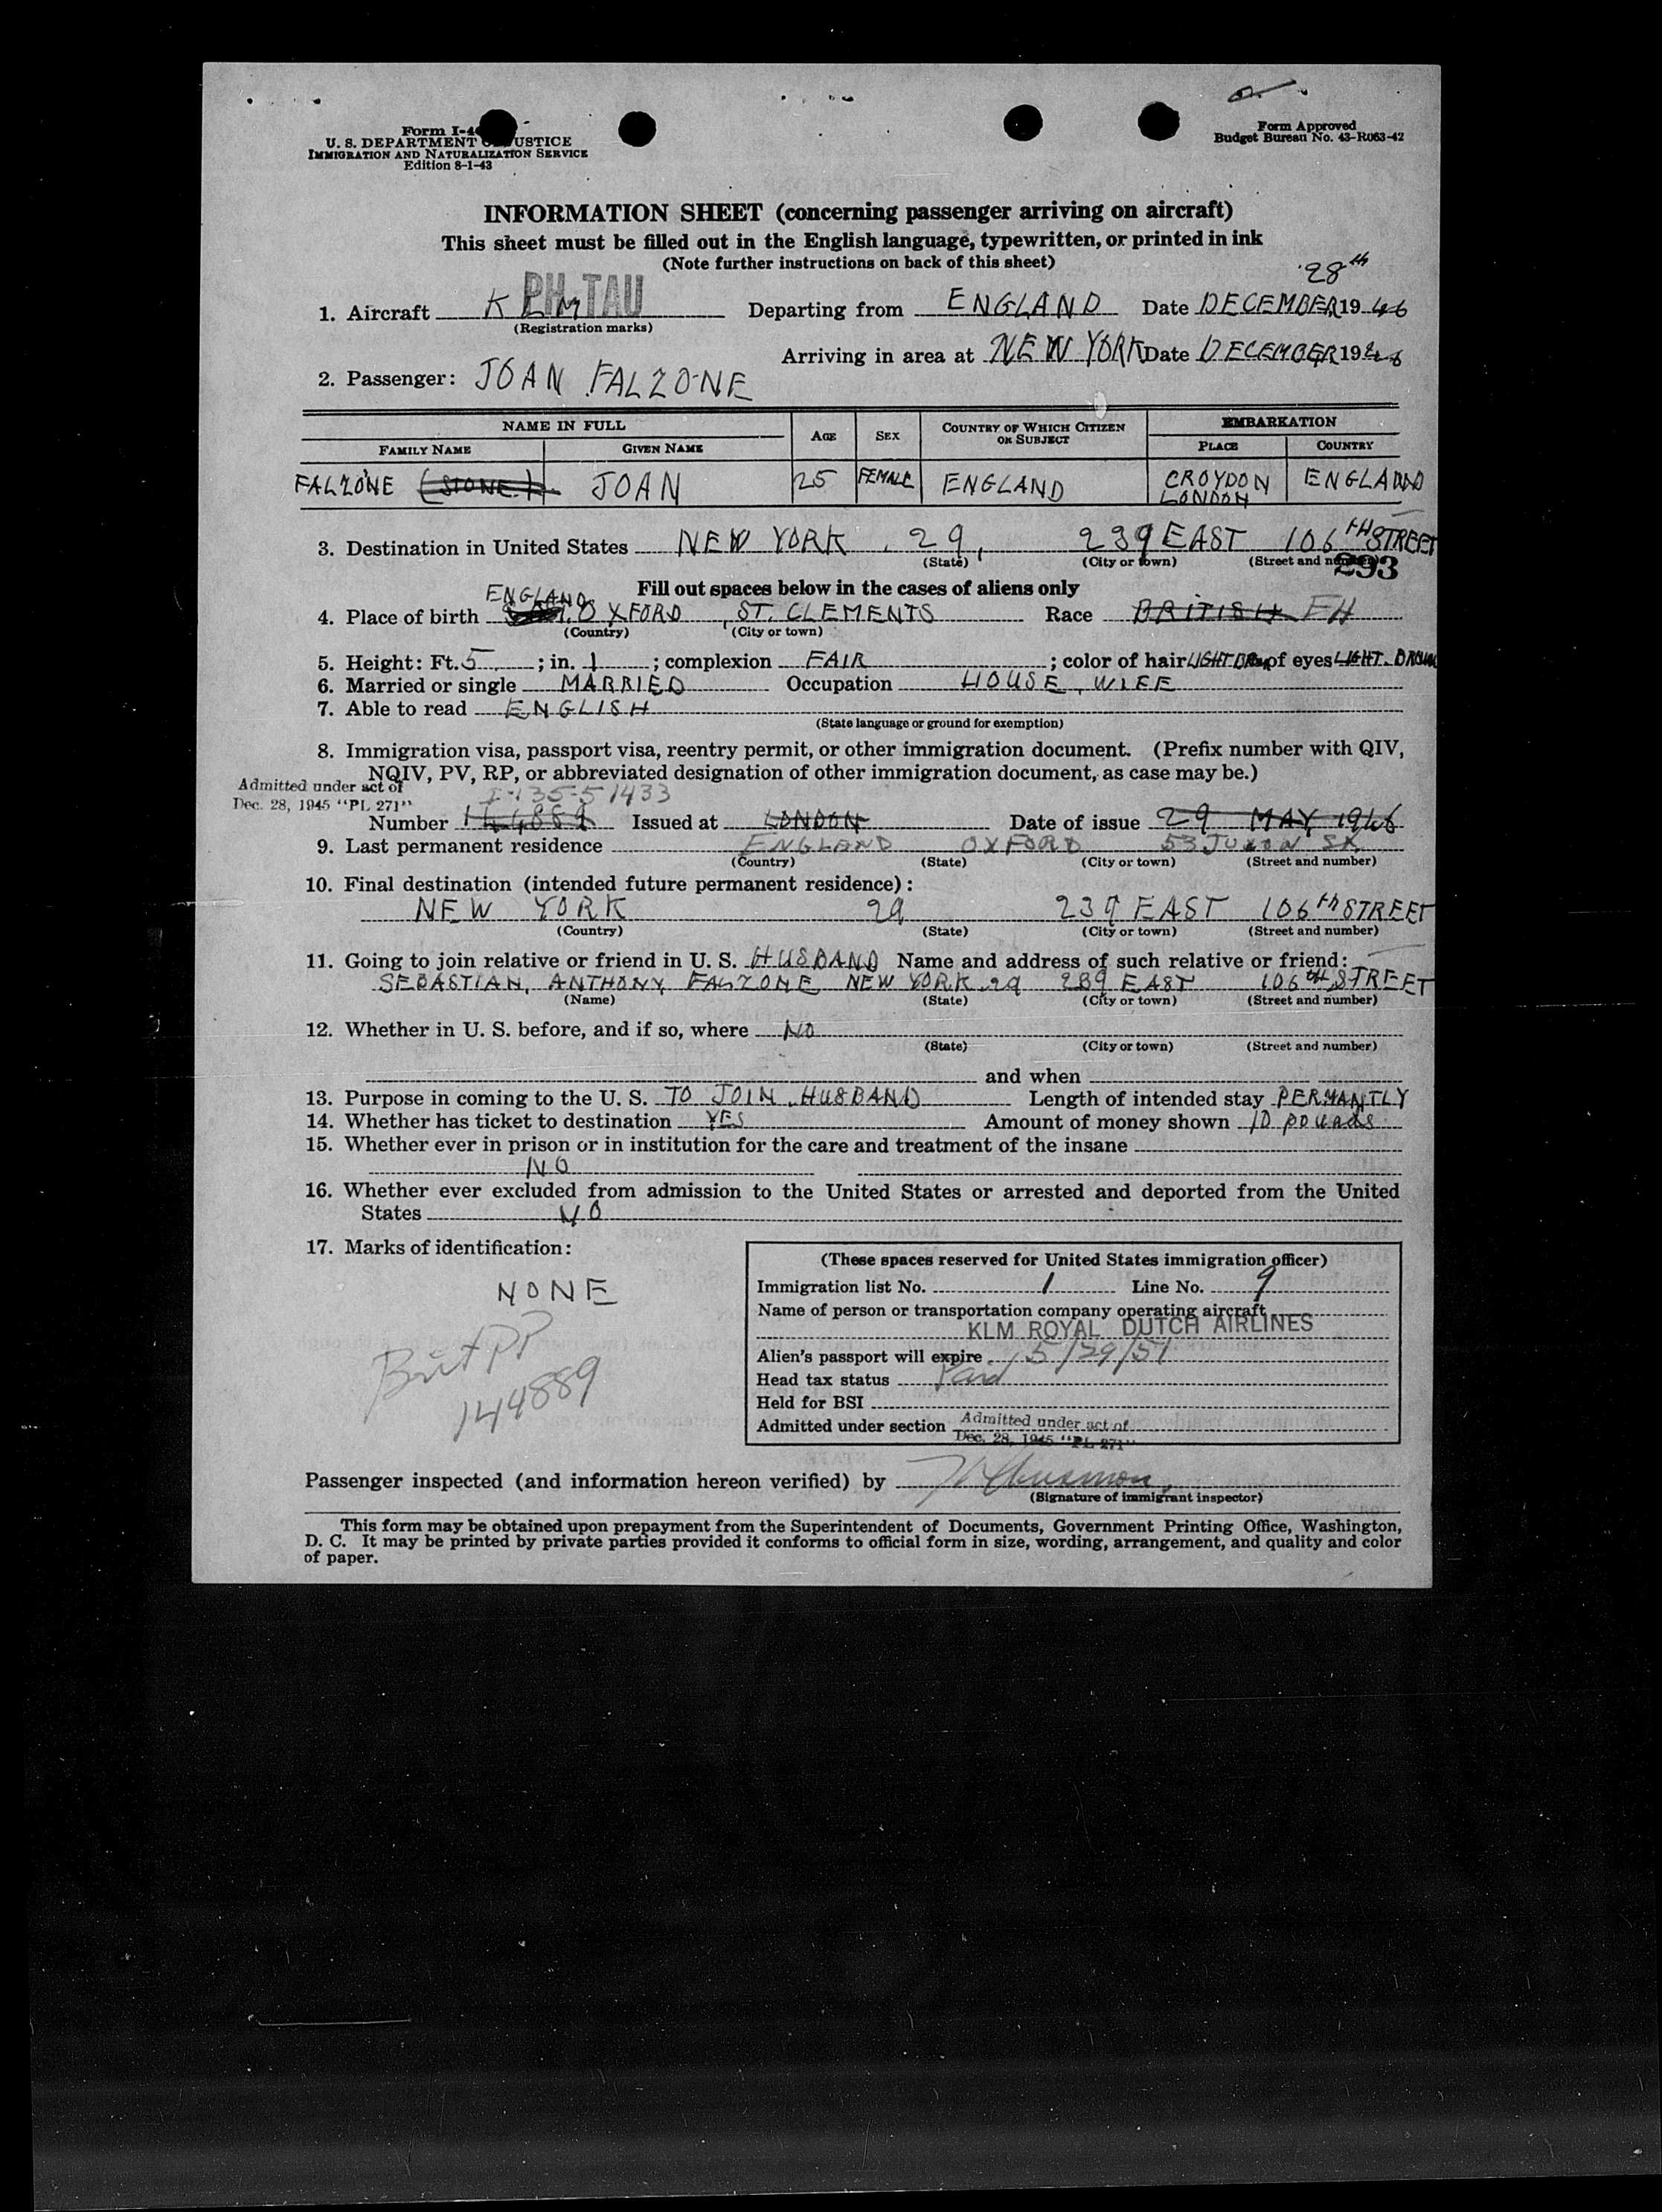 Form I-4
U. S. DEPARTMENT OF JUSTICE
IMMIGRATION AND NATURALIZATION SERVICE
Edition 8-1-43
Form Approved
Budget Bureau No. 43-R063-42
INFORMATION SHEET (concerning passenger arriving on aircraft)
This sheet must be filled out in the English language, typewritten, or printed in ink
(Note further instructions on back of this sheet)
28th
1. Aircraft KLM PH TAU Departing from ENGLAND Date DECEMBER 1946
(Registration marks)
Arriving in area at NEW YORK Date DECEMBER 1946
2. Passenger: JOAN FALZONE
NAME IN FULL AGE SEX COUNTRY OF WHICH CITIZEN OR SUBJECT EMBARKATION
FAMILY NAME GIVEN NAME PLACE COUNTRY
FALZONE (STONE) JOAN 25 FEMALE ENGLAND CROYDON LONDON ENGLAND
3. Destination in United States NEW YORK. 29, 239 EAST 106TH STREET
(State) (City or town) (Street and number)
293
Fill out spaces below in the cases of aliens only
ENGLAND
4. Place of birth OXFORD, ST. CLEMENTS Race BRITISH
(Country) (City or town)
5. Height: Ft. 5; in. 1; complexion FAIR; color of hair LIGHT BRN of eyes LIGHT. BROWN
6. Married or single MARRIED Occupation HOUSE WIFE
7. Able to read ENGLISH
(State language or ground for exemption)
8. Immigration visa, passport visa, reentry permit, or other immigration document. (Prefix number with QIV,
NQIV, PV, RP, or abbreviated designation of other immigration document, as case may be.)
Admitted under act of
Dec. 28, 1945 "PL 271"
I-135-51433
Number 144889 Issued at LONDON Date of issue 29 MAY 1946
9. Last permanent residence ENGLAND OXFORD 53
(Country) (State) (City or town) (Street and number)
10. Final destination (intended future permanent residence):
NEW YORK 29 239 EAST 106th STREET
(Country) (State) (City or town) (Street and number)
11. Going to join relative or friend in U. S. HUSBAND Name and address of such relative or friend:
SEBASTIAN, ANTHONY, FALZONE NEW YORK 29 239 EAST 106th STREET
(Name) (State) (City or town) (Street and number)
12. Whether in U. S. before, and if so, where NO
(State) (City or town) (Street and number)
and when
13. Purpose in coming to the U. S. TO JOIN HUSBAND Length of intended stay PERMANTLY
14. Whether has ticket to destination YES Amount of money shown 10 pounds
15. Whether ever in prison or in institution for the care and treatment of the insane
NO
16. Whether ever excluded from admission to the United States or arrested and deported from the United
States NO
17. Marks of identification:
NONE
Brit PP
144889
(These spaces reserved for United States immigration officer)
Immigration list No. 1 Line No. 9
Name of person or transportation company operating aircraft
KLM ROYAL DUTCH AIRLINES
Alien's passport will expire 5/29/51
Head tax status Paid
Held for BSI
Admitted under section Admitted under act of
Dec. 28, 1945 "PL 271"
Passenger inspected (and information hereon verified) by
(Signature of immigrant inspector)
This form may be obtained upon prepayment from the Superintendent of Documents, Government Printing Office, Washington,
D. C. It may be printed by private parties provided it conforms to official form in size, wording, arrangement, and quality and color
of paper.